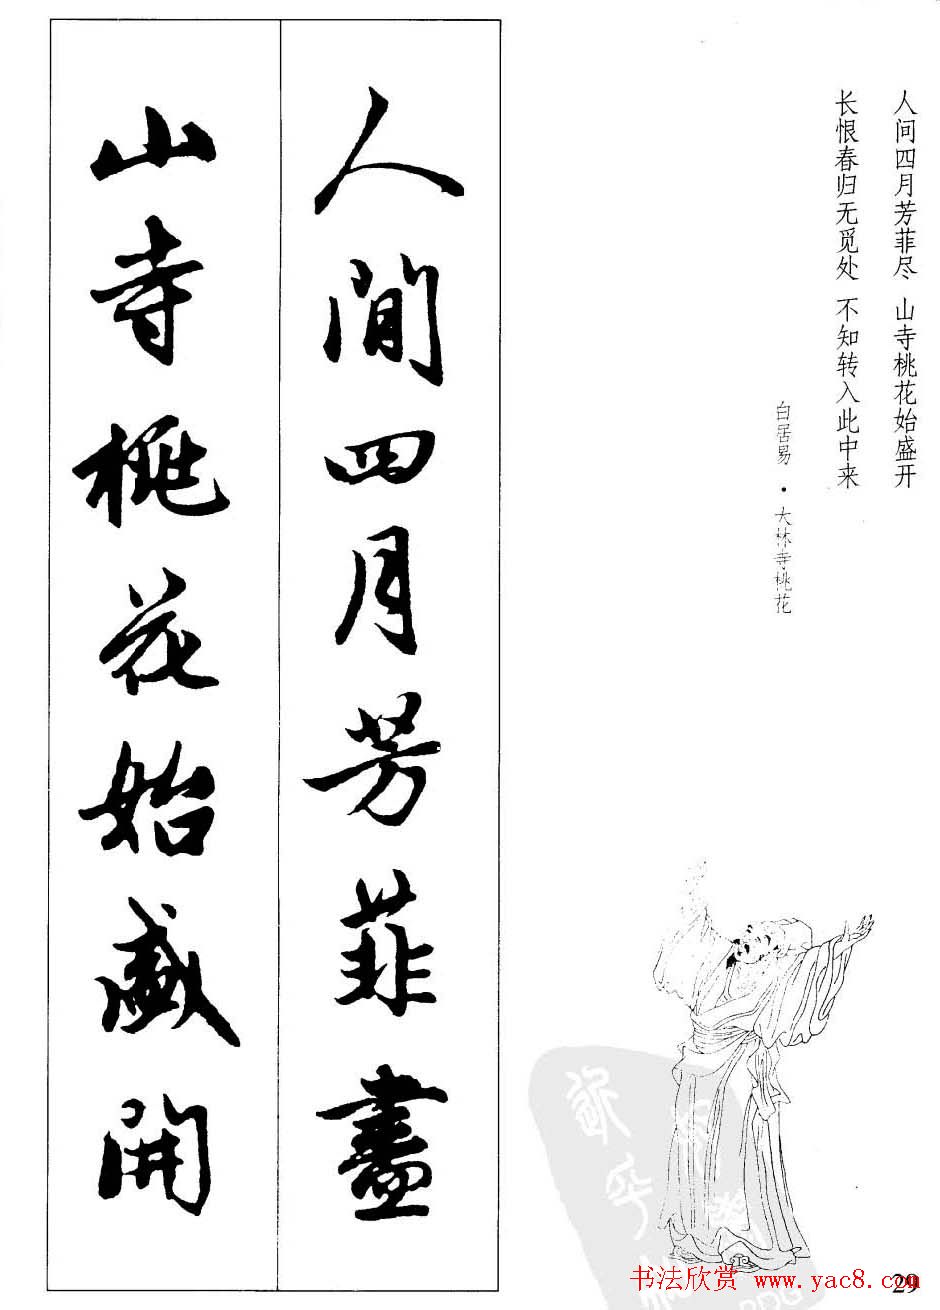 人间四月芳菲尽 山寺桃花始盛开
长恨春归无觅处 不知转入此中来
白居易·大林寺桃花
人閒四月芳菲盡
山寺桃花始盛開
书法欣赏 www.yac8.com
29